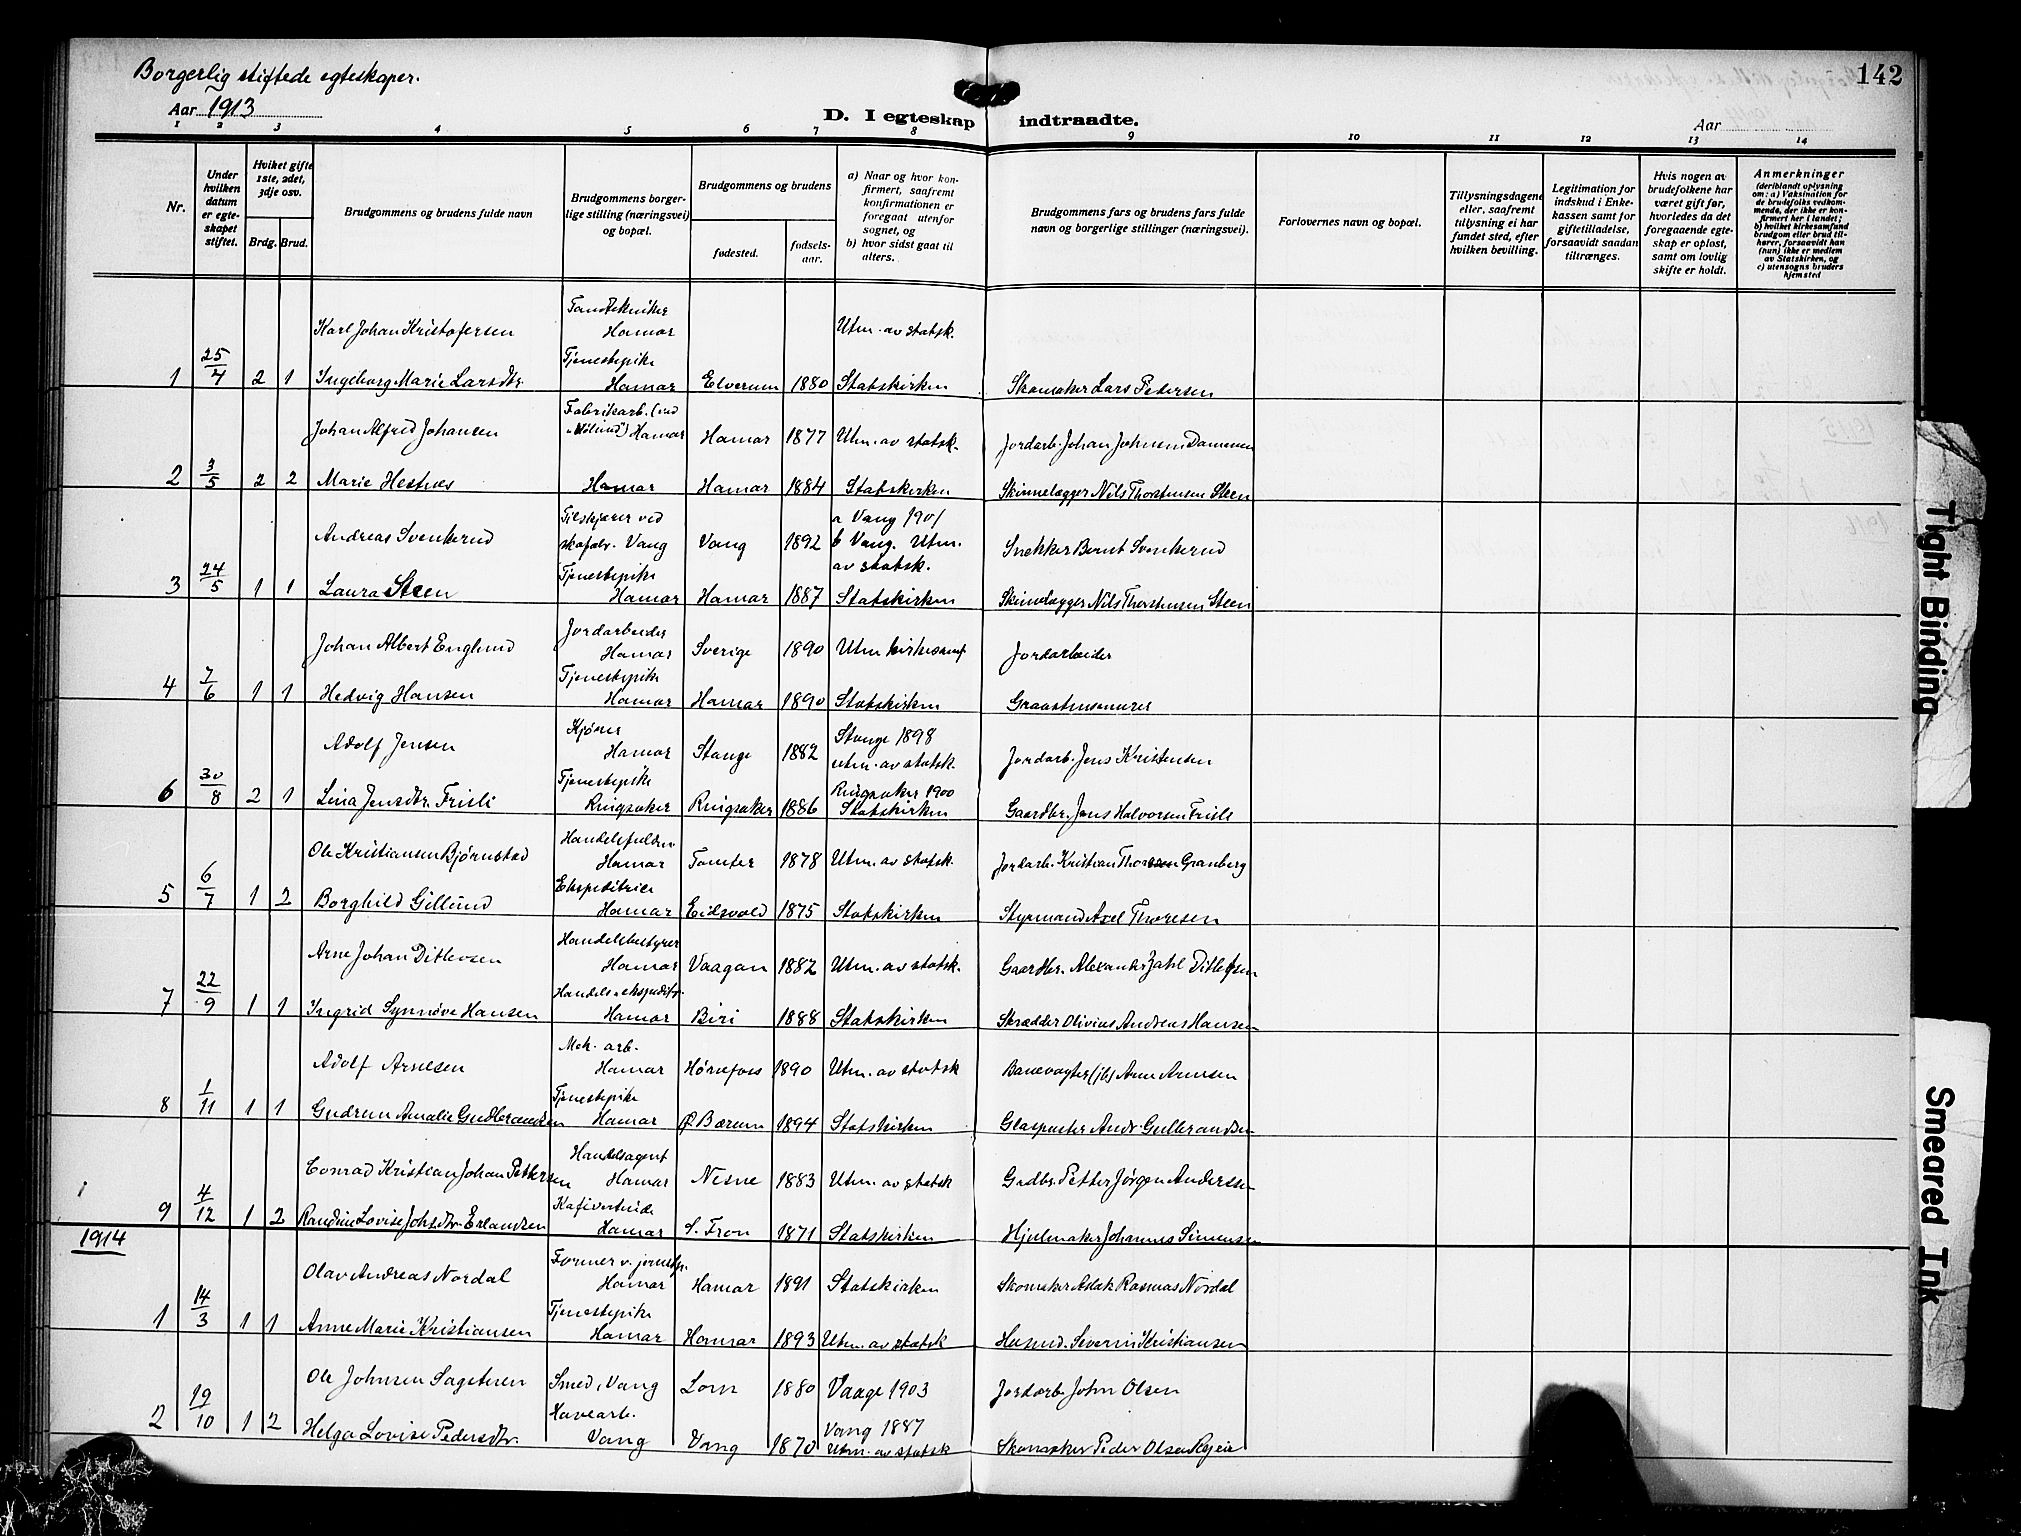 Borgerlig stiftede egteskaper.
142
Aar 1913
D. I egteskap indtraadte.
Aar
1 2 3 4 5 6 7 8 9 10 11 12 13 14
Nr.
Under hvilken datum er egteskapet stiftet.
Hvilket gifte 1ste, 2det, 3dje osv.
Brdg. Brud.
Brudgommens og brudens fulde navn
Brudgommens borgerlige stilling (næringsvei) og bopæl.
Brudgommens og brudens
fødested.
fødselsaar.
a) Naar og hvor konfirmert, saafremt konfirmationen er foregaat utenfor sognet, og
b) hvor sidst gaat til alters.
Brudgommens fars og brudens fars fulde navn og borgerlige stillinger (næringsvei).
Forlovernes navn og bopæl.
Tillysningsdagene eller, saafremt tillysning ei har fundet sted, efter hvilken bevilling.
Legitimation for indskud i Enkekassen samt for giftetilladelse, forsaavidt saadan tiltrænges.
Hvis nogen av brudefolkene har været gift før, hvorledes da det foregaaende egteskap er opløst, samt om lovlig skifte er holdt.
Anmerkninger
(deriblandt oplysning om: a) Vaksination for de brudefolks vedkommende, der ikke er konfirmert her i landet; b) hvilket kirkesamfund brudgom eller brud tilhører, forsaavidt han (hun) ikke er medlem av Statskirken, og c) utensogns bruders hjemsted
Karl Johan Kristofersen Tandtekniker Hamar Utm. av statsk.
1 25/4 2 1 Ingeborg Marie Larsdtr. Tjenestepike Hamar Elverum 1880 Statskirken Skomaker Lars Petersen
Johan Alfred Johansen Fabrikarb. (ved Hamar Hamar 1877 Utm. av statsk. Jordarb. Johan Johnsen Dammen
2 3/5 2 2 Marie Hestnes Hamar Hamar 1884 Statskirken Skinnelægger Nils Thorstensen Steen
Andreas Svenkerud Tilskjærer ved skofabr. Vang Vang 1892 a Vang 1901 b Vang. Utm. av statsk. Snekker Bernt Svenkerud
3 24/5 1 1 Laura Steen Tjenestepike Hamar Hamar 1887 Statskirken Skinnelægger Nils Thorstensen Steen
Johan Albert Englund Jordarbeider Hamar Sverige 1890 Utm kirkesamf Jordarbeider
4 7/6 1 1 Hedvig Hansen Tjenestepike Hamar Hamar 1890 Statskirken Graastensmurer
Adolf Jensen Kjører Hamar Stange 1882 Stange 1898 utm. av statsk. Jordarb. Jens Kristensen
6 30/8 2 1 Lina Jensdtr. Frisli Tjenestepike Ringsaker Ringsaker 1886 Ringsaker 1900 Statskirken Gaardbr. Jens Halvorsen Frisli
Ole Kristiansen Bjørnstad Hamar Tomter 1878 Utm. av statsk. Jordarb. Kristian Thoresen Granberg
5 6/7 1 2 Borghild Gillund Ekspeditrice Hamar Eidsvold 1875 Statskirken Styrmand Axel Thoresen
Arne Johan Ditlevsen Handelsbestyrer Hamar Vaagan 1882 Utm. av statsk. Gaardbr. Alexander Zahl Ditlefsen
7 22/9 1 1 Ingrid Synnøve Hansen Handelsekspeditr. Hamar Biri 1888 Statskirken Skrædder Olivius Andreas Hansen
Adolf Arnesen Mek. arb. Hamar Hønefoss 1890 Utm. av statsk Banevogter (jb) Arne Arnesen
8 1/11 1 1 Gudrun Amalie Gudbrandsen Tjenestepike Hamar Ø Bærum 1894 Statskirken Glaspuster Andr Gulbrandsen
Conrad Kristian Johan Pettersen Handelsagent Hamar Nesne 1883 Utm. av statsk Grdbr. Petter Jørgen Anderssen
9 4/12 1 2 Randine Lovise Johsdtr. Erlandsen Hamar S. Fron 1871 Statskirken Hjulmaker Johannes Simensen
1914
Olav Andreas Nordal Former v. jernstøp. Hamar Hamar 1891 Statskirken Skomaker Aslak Rasmus Nordal
1 14/3 1 1 Anne Marie Kristiansen Tjenestepike Hamar Hamar 1893 Utm. av statsk Husmd. Severin Kristiansen
Ole Johnsen Sagstuen Smed, Vang Lom 1880 Vaage 1903 Jordarb. John Olsen
2 19/10 1 2 Helga Lovise Pedersdtr. Havearb. Vang Vang 1870 Vang 1887 Utm. av statsk Skomaker Peder Olsen
Tight Binding
Smeared Ink